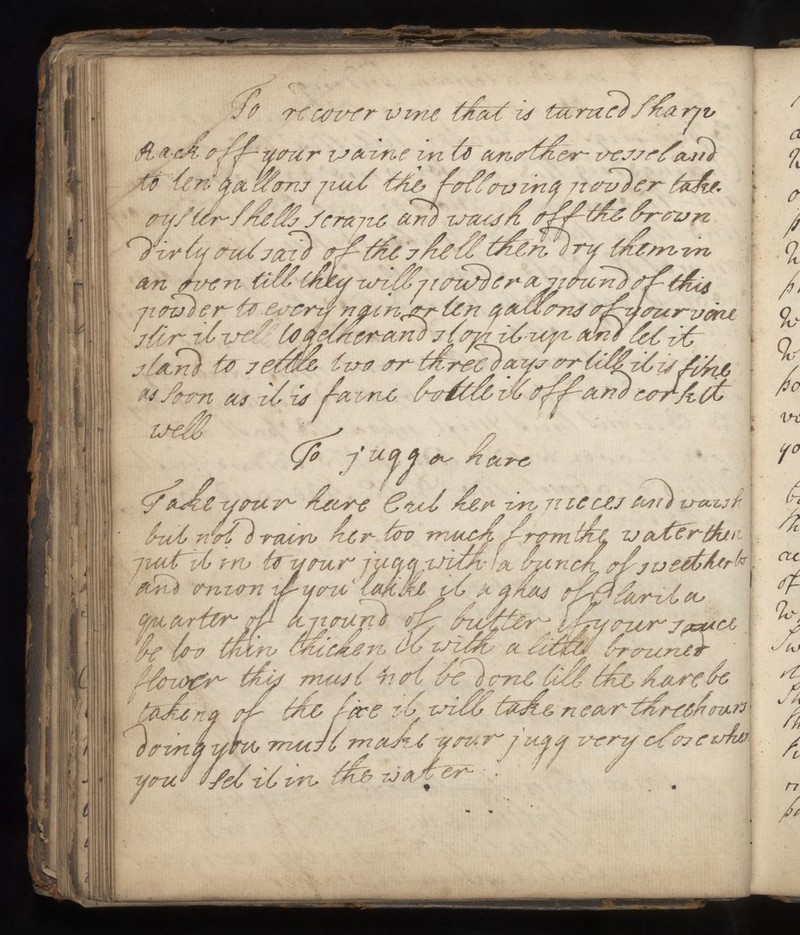 To recover wine that is turned sharp
Rack off your waine in to another vessel and
to ten gallons put the following powder take
oyster shells scrape and waish off the brown
dirty out said of the shell then dry them in
an oven till they will powder a pound of this
powder to every nain or ten gallons of your wine
stir it well together and stop it up and let it
stand to settle two or three days or till it is fine
as soon as it is faine bottle it off and cork it
well
To jugg a hare
Take your hare Cut her in pieces and waish
but not drain her too much from the water then
put it in to your jugg with a bunch of sweet herbs
and onion if you laike it a glas of Clarit a
quarter of a pound of butter if your sauce
be too thin thicken it with a little brouned
flower this must not be done till the hare be
takeng of the fire it will take near three hours
doing you must make your jugg very close when
you set it in the water